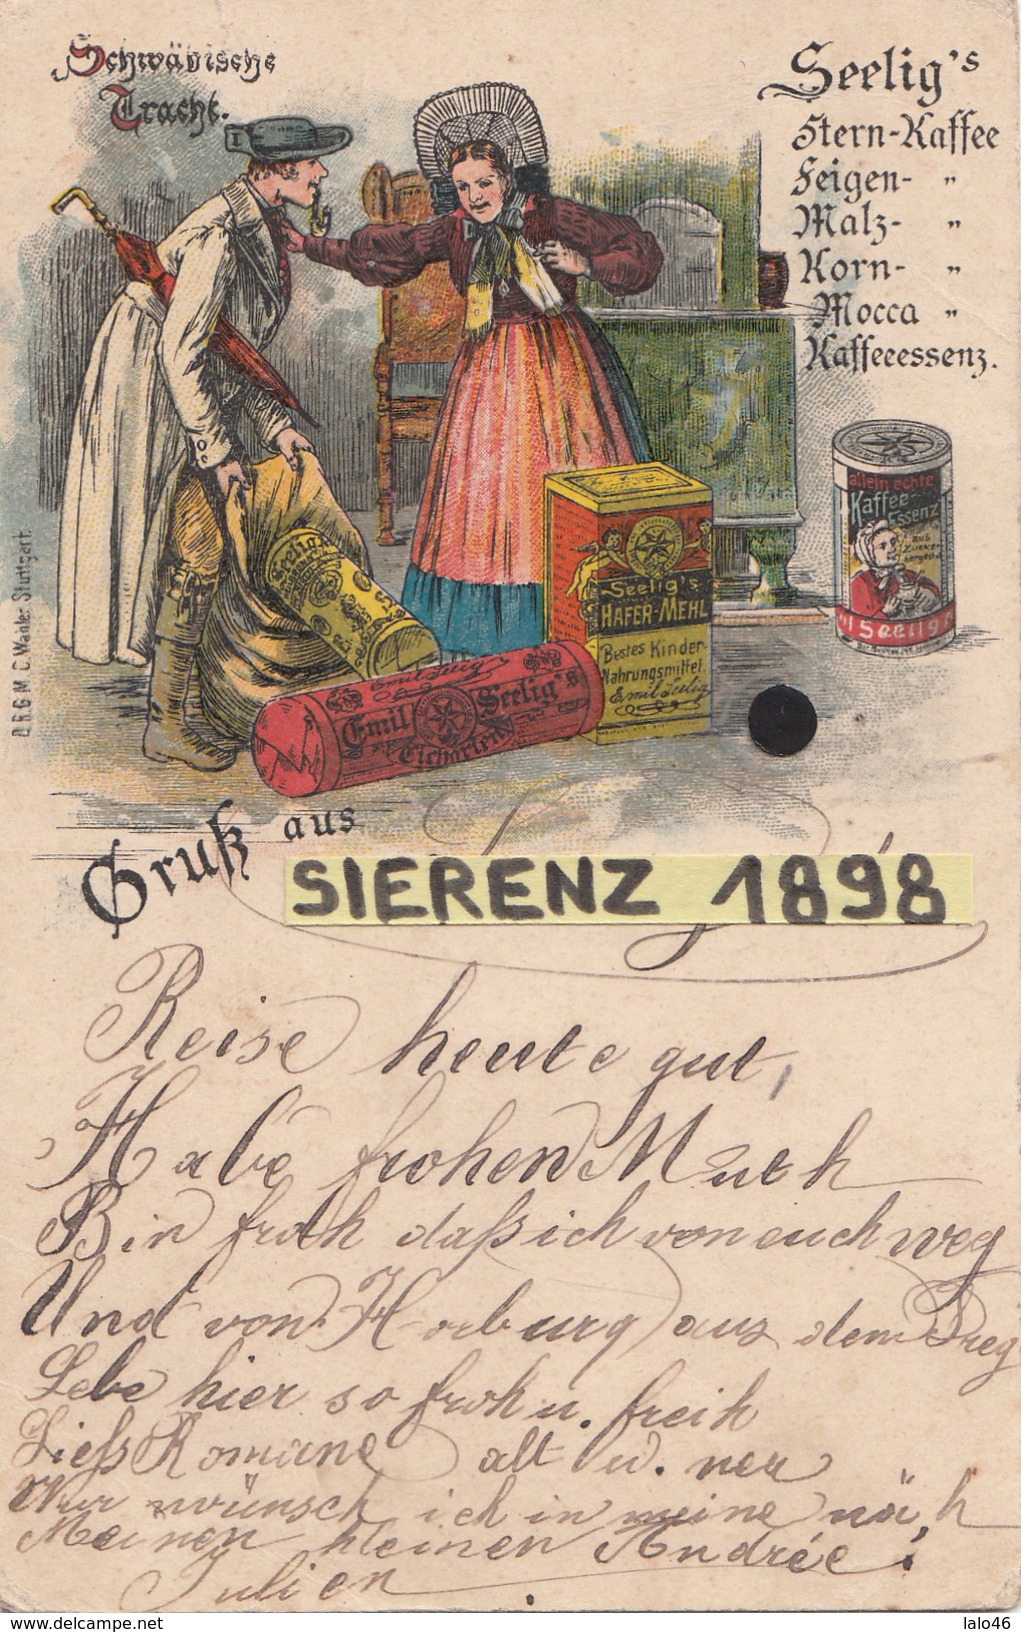 Schwäbische
Tracht.
Seelig's
Stern-Kaffee
Feigen- "
Malz- "
Korn- "
Mocca "
Kaffeeessenz.
allein echte
Kaffee-
Essenz
aus
Zucker
Seelig
Seelig's
HAFER-MEHL
Bestes Kinder-
Nahrungsmittel.
Emil Seelig
Emil Seelig
Emil Seelig's
Cichorien
D.R.G.M. C. Wähler Stuttgart.
Gruß aus
SIERENZ 1898
Reise heute gut,
Habe frohen Muth
Bin froh daß ich von euch weg
Und von Horburg aus dem
Lebe hier so froh u. freih
Ließ Romane alt u. neu
Nur wünsch ich in meine näh
Meinen kleinen Andrée!
Julien.
lalo46